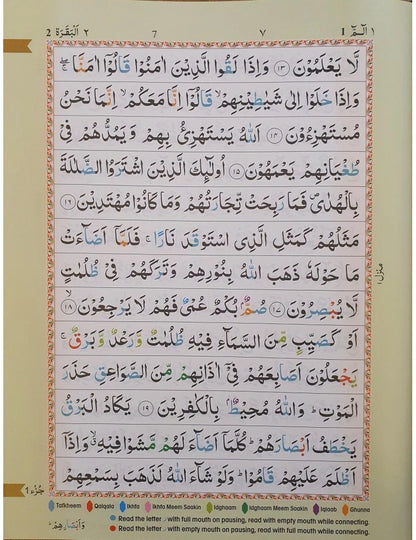 ١ الٓـمّٓ 1 ٧ 7 ٢ اَلْبَقَرَة 2
لَّا يَعْلَمُوْنَ ۝١٣ وَاِذَا لَقُوا الَّذِيْنَ اٰمَنُوْا قَالُوْۤا اٰمَنَّا ۖۚ
وَاِذَا خَلَوْا اِلٰى شَيٰطِيْنِهِمْ ۙ قَالُوْۤا اِنَّا مَعَكُمْ ۙ اِنَّمَا نَحْنُ
مُسْتَهْزِءُوْنَ ۝١٤ اَللّٰهُ يَسْتَهْزِئُ بِهِمْ وَيَمُدُّهُمْ فِيْ
طُغْيَانِهِمْ يَعْمَهُوْنَ ۝١٥ اُولٰٓئِكَ الَّذِيْنَ اشْتَرَوُا الضَّلٰلَةَ
بِالْهُدٰى ۪ فَمَا رَبِحَتْ تِّجَارَتُهُمْ وَمَا كَانُوْا مُهْتَدِيْنَ ۝١٦
مَثَلُهُمْ كَمَثَلِ الَّذِي اسْتَوْقَدَ نَارًا ۚ فَلَمَّاۤ اَضَآءَتْ
مَا حَوْلَهٗ ذَهَبَ اللّٰهُ بِنُوْرِهِمْ وَتَرَكَهُمْ فِيْ ظُلُمٰتٍ
لَّا يُبْصِرُوْنَ ۝١٧ صُمٌّۢ بُكْمٌ عُمْيٌ فَهُمْ لَا يَرْجِعُوْنَ ۝١٨
اَوْ كَصَيِّبٍ مِّنَ السَّمَآءِ فِيْهِ ظُلُمٰتٌ وَّرَعْدٌ وَّبَرْقٌ ۚ
يَجْعَلُوْنَ اَصَابِعَهُمْ فِيْۤ اٰذَانِهِمْ مِّنَ الصَّوَاعِقِ حَذَرَ
الْمَوْتِ ؕ وَاللّٰهُ مُحِيْطٌۢ بِالْكٰفِرِيْنَ ۝١٩ يَكَادُ الْبَرْقُ
يَخْطَفُ اَبْصَارَهُمْ ؕ كُلَّمَاۤ اَضَآءَ لَهُمْ مَّشَوْا فِيْهِ ۙ وَاِذَاۤ
اَظْلَمَ عَلَيْهِمْ قَامُوْا ؕ وَلَوْ شَآءَ اللّٰهُ لَذَهَبَ بِسَمْعِهِمْ
منزل ١
جُزْء 1
Tafkheem Qalqala Ikhfa Ikhfa Meem Saakin Idghaam Idghaam Meem Saakin Iqlaab Ghunna
Read the letter ر with full mouth on pausing, read with empty mouth while connecting.
Read the letter ر with empty mouth on pausing, read with full mouth while connecting.
وَاَبْصَارِهِمْ ؕ